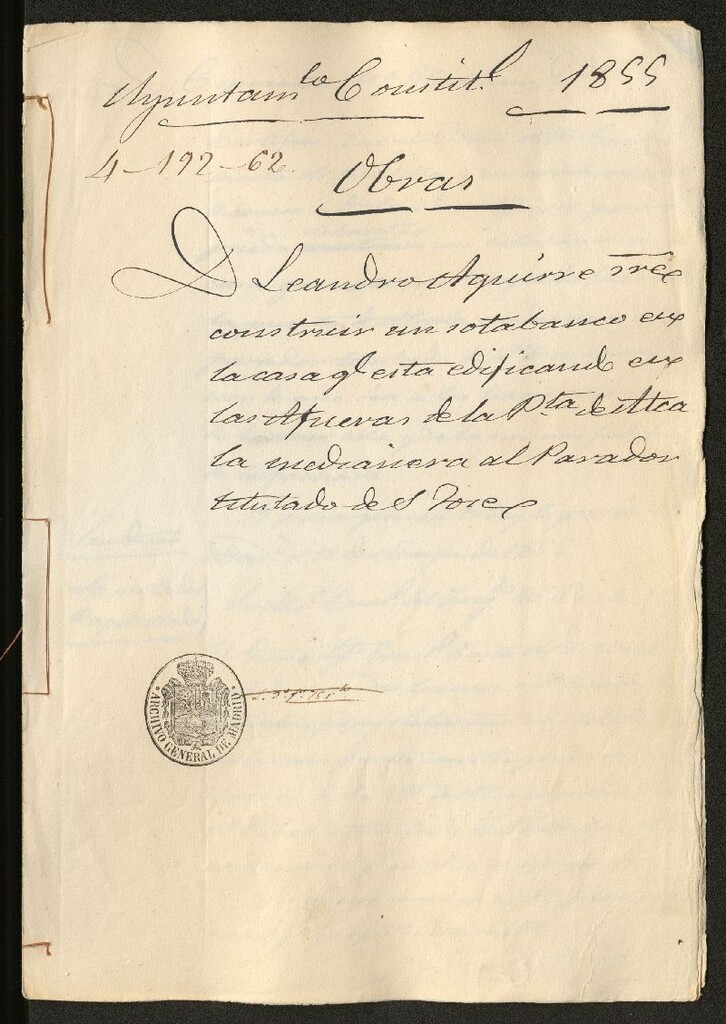 Ayuntam.to Constit.l 1855
4-192-62.
Obras
D Leandro Aguirre sre
construir un sotabanco en
la casa q.e esta edificando en
las Afueras de la P.ta de Alca
la medianera al Parador
titulado de S. Jose
ARCHIVO GENERAL DE MADRID